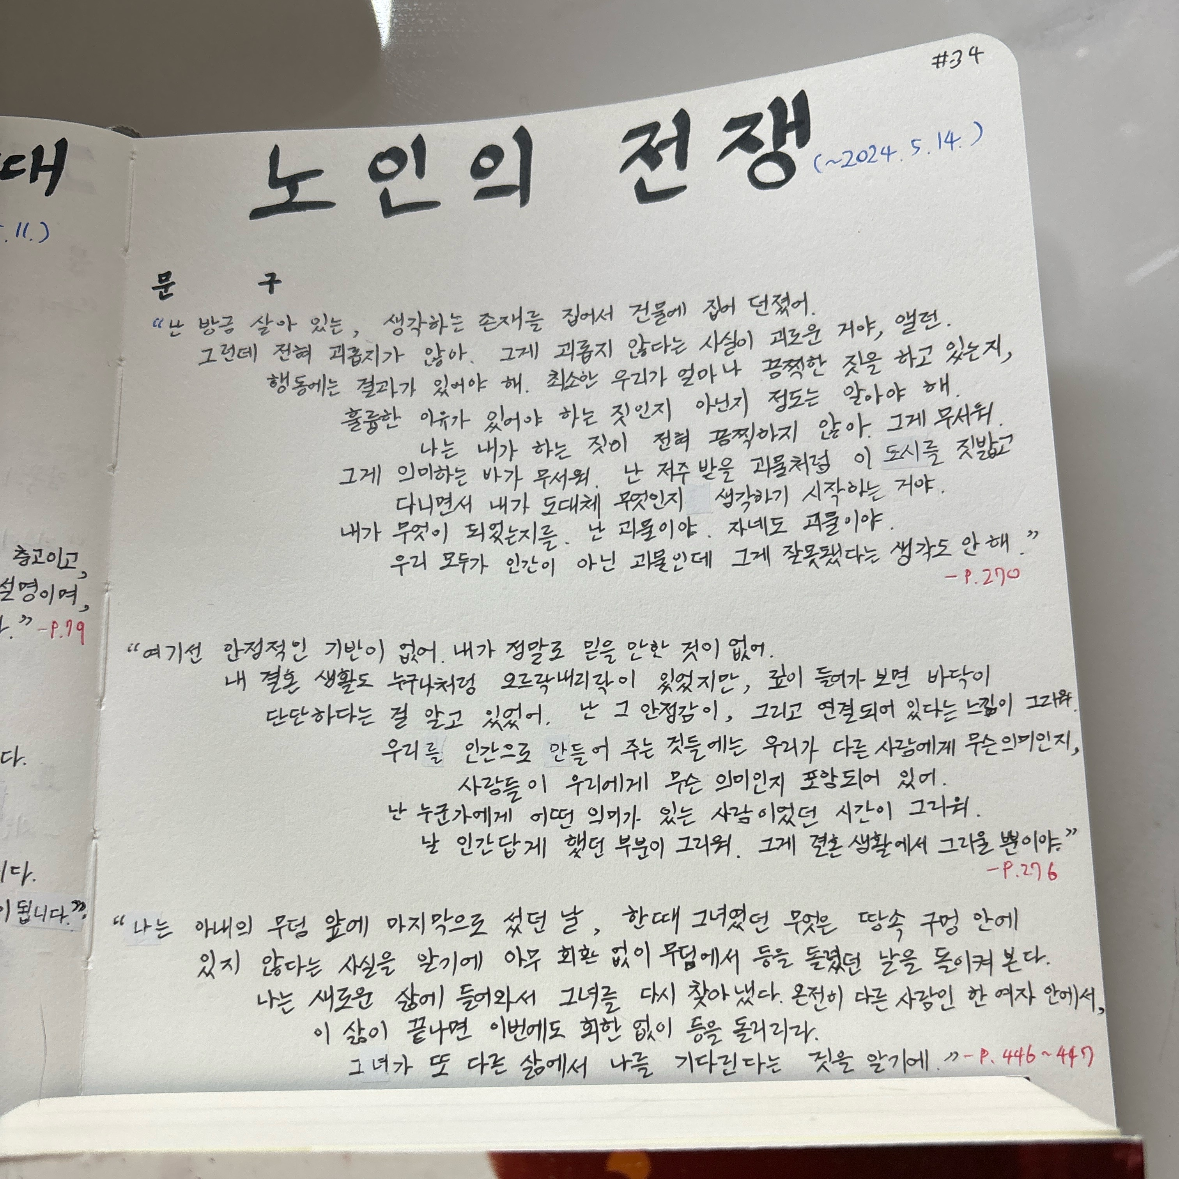 #34
노인의 전쟁
(~2024. 5. 14.)
문 구
“난 방금 살아 있는, 생각하는 존재를 집어서 건물에 집어 던졌어.
그런데 전혀 괴롭지가 않아. 그게 괴롭지 않다는 사실이 괴로운 거야, 앨런.
행동에는 결과가 있어야 해. 최소한 우리가 얼마나 끔찍한 짓을 하고 있는지,
훌륭한 이유가 있어야 하는 짓인지 아닌지 정도는 알아야 해.
나는 내가 하는 짓이 전혀 끔찍하지 않아. 그게 무서워.
그게 의미하는 바가 무서워. 난 저주 받을 괴물처럼 이 도시를 짓밟고
다니면서 내가 도대체 무엇인지 생각하기 시작하는 거야.
내가 무엇이 되었는지를. 난 괴물이야. 자네도 괴물이야.
우리 모두가 인간이 아닌 괴물인데 그게 잘못됐다는 생각도 안 해.”
-P.270
“여기선 안정적인 기반이 없어. 내가 정말로 믿을 만한 것이 없어.
내 결혼 생활도 누구나처럼 오르락내리락이 있었지만, 깊이 들어가 보면 바닥이
단단하다는 걸 알고 있었어. 난 그 안정감이, 그리고 연결되어 있다는 느낌이 그리워.
우리를 인간으로 만들어 주는 것들에는 우리가 다른 사람에게 무슨 의미인지,
사람들이 우리에게 무슨 의미인지 포함되어 있어.
난 누군가에게 어떤 의미가 있는 사람이었던 시간이 그리워.
날 인간답게 했던 부분이 그리워. 그게 결혼 생활에서 그리울 뿐이야.”
-P.276
“나는 아내의 무덤 앞에 마지막으로 섰던 날, 한때 그녀였던 무엇은 땅속 구멍 안에
있지 않다는 사실을 알기에 아무 회한 없이 무덤에서 등을 돌렸던 날을 돌이켜 본다.
나는 새로운 삶에 들어와서 그녀를 다시 찾아냈다. 온전히 다른 사람인 한 여자 안에서,
이 삶이 끝나면 이번에도 회한 없이 등을 돌리리라.
그녀가 또 다른 삶에서 나를 기다린다는 것을 알기에.” -P. 446~447
대
.11.)
충고이고,
설명이며,
.” -P.79
다.
니다.
이 됩니다.”